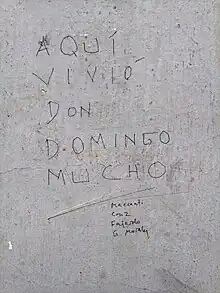 AQUÍ
VIVIÓ
DON
DOMINGO
MUCHO
Cruz